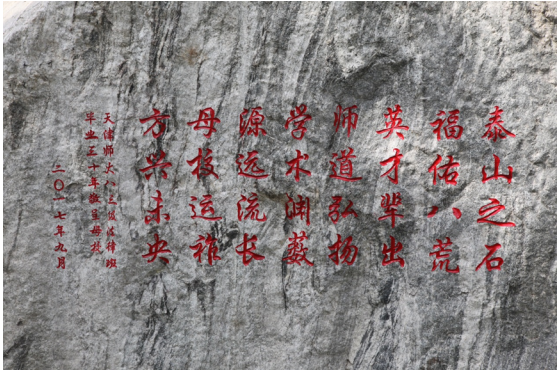 泰山之石
福佑八荒
英才辈出
师道弘扬
学术渊薮
源远流长
母校运祚
方兴未央
天津师大八三级法律班
毕业三十年敬呈母校
二〇一七年九月